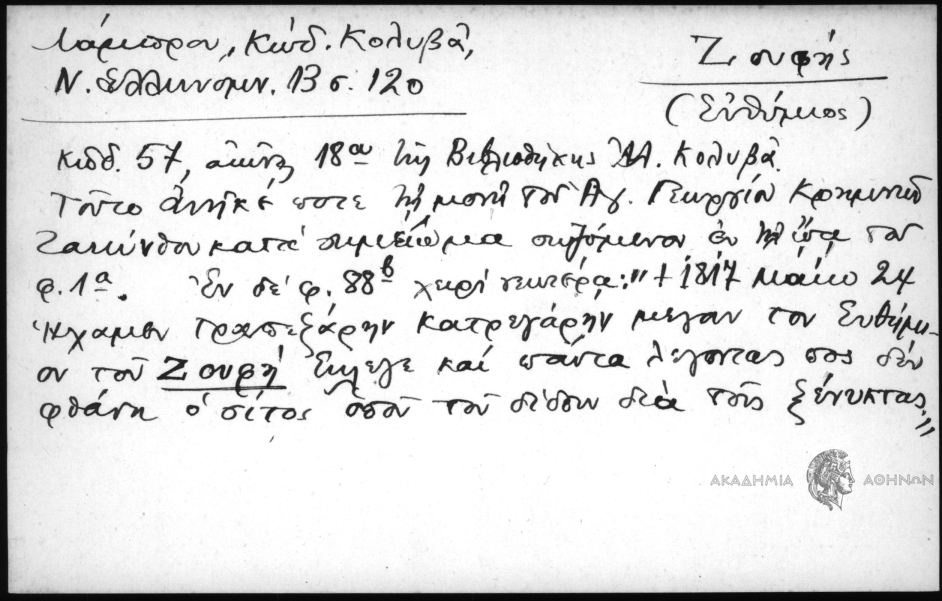 Λάμπρου, Κώδ. Κολυβᾶ,
Ν. Ἑλληνομν. 13 σ. 120
Ζουφής
(Εὐθύμιος)
κώδ. 57, αἰῶνος 18ου τῆς Βιβλιοθήκης Ἀλ. Κολυβᾶ
Τοῦτο ἀνῆκέ ποτε τῇ μονῇ τοῦ Ἁγ. Γεωργίου Κρημνῶν
Ζακύνθου κατὰ σημείωμα σῳζόμενον ἐν τῇ ὤᾳ τοῦ
φ. 1α. Ἐν δὲ φ. 88β χειρὶ νεωτέρᾳ: "+ 1817 μαίω 24
ἤχαμεν τραπεζάρην κατρεγάρην μεγαν τον Ευθύμι-
ον τοῦ Ζουφή καί πάντα λεγοντας πος δέν
φθάνη ὁ σίτος ὁποῦ τοῦ δίδουν διὰ τοῦς ξένυκτας"
ΑΚΑΔΗΜΙΑ ΑΘΗΝΩΝ